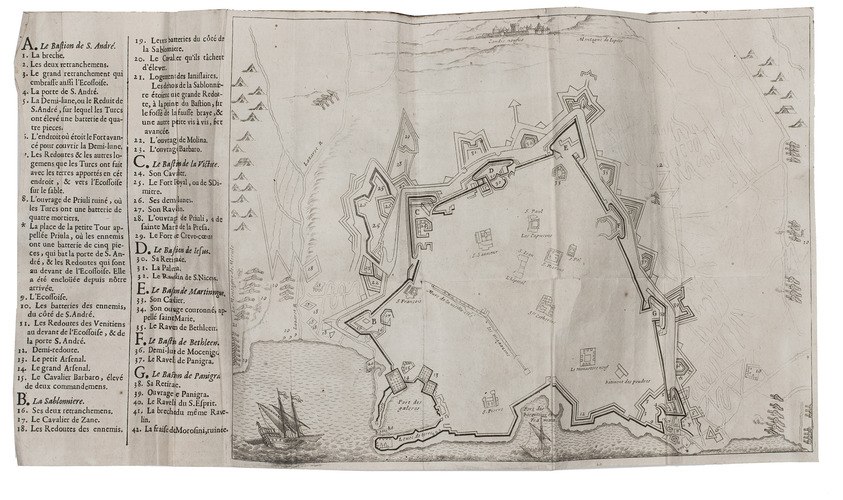 A. Le Bastion de S. André.
1. La breche.
2. Les deux retranchemens.
3. Le grand retranchement qui
embrasse aussi l'Ecossoise.
4. La porte de S. André.
5. La Demi-lune, ou le Reduit de
S. André, sur lequel les Turcs
ont élevé une batterie de qua-
tre pieces.
6. L'endroit où étoit le Fort avan-
cé pour couvrir la Demi-lune.
7. Les Redoutes & les autres lo-
gemens que les Turcs ont fait
avec les terres apportés en cét
endroit, & vers l'Ecossoise
sur le sable.
8. L'ouvrage de Priuli ruiné, où
les Turcs ont une batterie de
quatre mortiers.
* La place de la petite Tour ap-
pellée Priula, où les ennemis
ont une batterie de cinq pie-
ces, qui bat la porte de S. An-
dré, & les Redoutes qui sont
au devant de l'Ecossoise. Elle
a été encloüée depuis nôtre
arrivée.
9. L'Ecossoise.
10. Les batteries des ennemis,
du côté de S. André.
11. Les Redoutes des Venitiens
au devant de l'Ecossoise, & de
la porte S. André.
12. Demi-redoute.
13. Le petit Arsenal.
14. Le grand Arsenal.
15. Le Cavalier Barbaro, élevé
de deux commandemens.
B. La Sablonniere.
16. Ses deux retranchemens.
17. Le Cavalier de Zane.
18. Les Redoutes des ennemis.
19. Leurs batteries du côté de
la Sablonniere.
20. Le Cavalier qu'ils tâchent
d'élever.
21. Logement des Janissaires.
Les dehors de la Sablonnie-
re étoient une grande Redou-
te, à la pointe du Bastion, sur
le fossé de la fausse braye, &
une autre petite vis à vis, &
avancée.
22. L'ouvrage de Molina.
23. L'ouvrage Barbaro.
C. Le Bastion de la Victoire.
24. Son Cavalier.
25. Le Fort Royal, ou de S Di-
mitre.
26. Ses demi-lunes.
27. Son Ravelin.
28. L'ouvrage de Priuli, & de
sainte Marie de la Presa.
29. Le Fort de Creve-cœur
D. Le Bastion de Jesus.
30. Sa Retirade.
31. La Palma.
32. Le Ravelin de S. Nicolas.
E. Le Bastion de Martinengue.
33. Son Cavalier.
34. Son ouvrage couronné, ap-
pellé sainte Marie.
35. Le Ravelin de Bethleem.
F. Le Bastion de Bethleem.
36. Demi-lune de Mocenigo.
37. Le Ravelin de Panigra.
G. Le Bastion de Panigra.
38. Sa Retirade.
39. Ouvrage de Panigra.
40. Le Ravelin du S. Esprit.
41. La breche du même Rave-
lin.
42. La fraise de Morosini, ruinée.
Candie neufve
S. Paul
Les Capucins
S. François
Port des
galeres
S. Pierre
Le monastere neuf
Batiment des poudres